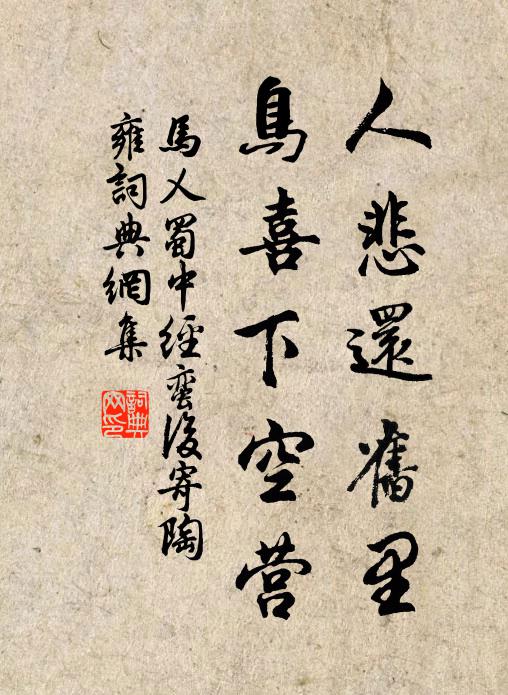 人悲還舊里
鳥喜下空营
馬乂蜀中經蛮後寄陶
雍詞典網集
詞典
网印